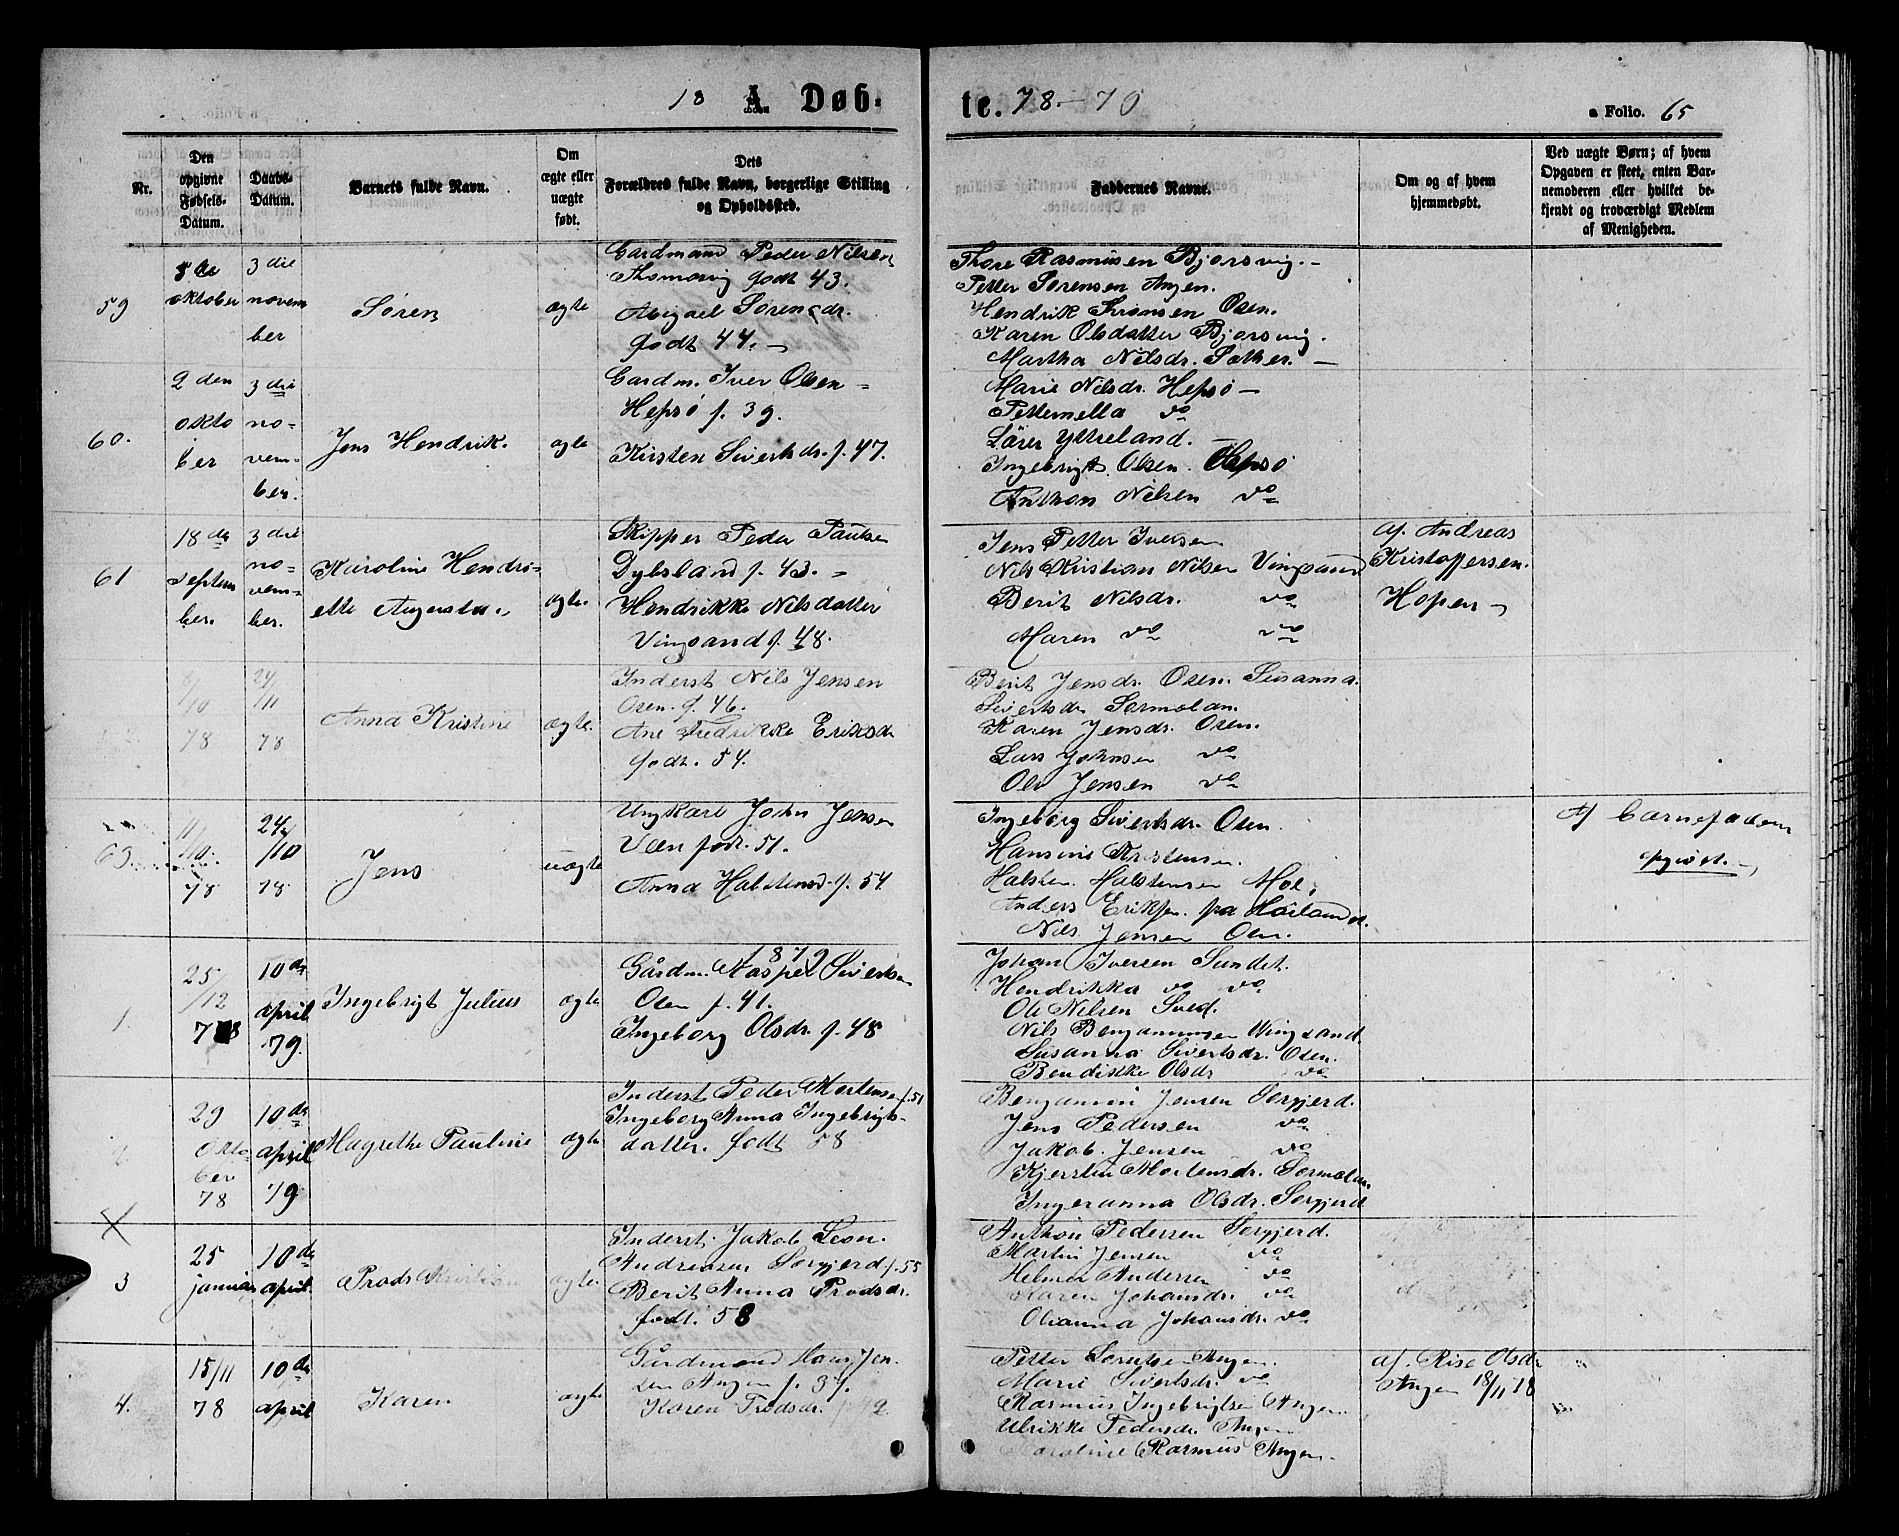 18 A. Døb-
te. 78-79
a Folio. 65
Nr.
Den opgivne Fødsels-Datum.
Daabs-Datum.
Barnets fulde Navn.
Om ægte eller uægte født.
Dets Forældres fulde Navn, borgerlige Stilling og Opholdssted.
Faddernes Navne.
Om og af hvem hjemmedøbt.
Ved uægte Børn; af hvem Opgaven er skeet, enten Barnemoderen eller hvilket bekjendt og troværdigt Medlem af Menigheden.
59
oktober
3die november
Søren
ægte
Gardmand Peder Nilsen
født 43.
Abigael Sørensdr.
født 44.
Thore Rasmusen Bjørsvig.
Petter Sørensen Angen.
Hendrik Osen.
Karen Olsdatter Bjørsvig.
Martha Nilsdr. Sæther.
60.
2den oktober
3die november.
Jens Hendrik.
ægte
Gardm. Iver Olsen
Hepsø f. 39.
Kirsten Sivertsdr. f. 47.
Marie Nilsdr. Hepsø
Petternella do
Lärer Yttreland.
Ingebrigt Olsen. Hepsø
Anthon Nilsen do
61
18de september.
3die november.
Karoline Hendri-
ette Augusta.
ægte.
Skipper Peder Paulsen
Dybsland f. 43.
Hendrikke Nilsdatter
Vingsand f. 48.
Jens Petter Iversen
Nils Kristian Nilsen Vingsand
Berit Nilsdr. do
Maren do do
af. Andreas
Kristoffersen.
Hopen
78
24/11 78
Anna Kristine
ægte.
Inderst Nils Jensen
Osen. f. 46.
Ane Fredrikke Eriksdr
født. 54.
Berit Jensdr. Osen. Susanna
Sivertsdr Sørmelan.
Karen Jensdr. Osen.
Lars Johnsen do
Ole Jensen do
63.
11/10 78
24/10 78
Jens
uægte
Ungkarl John Jensen
født. 51.
Anna Halstensd. f. 54
Ingeborg Sivertsdr. Osen.
Hansine Kristensen.
Halsten Halstensen
Anders Eriksen. på
Nils Jensen Osen.
Af Barnefaderen
opgivet.
1879
1.
25/12 78
10de april 79.
Ingebrigt Julius
ægte
Gårdm. Kasper Sivertsen
Osen f. 41.
Ingeborg Olsdr. f. 48
Johan Iversen Sundet.
Hendrikka do do
Ole Nilsen Sved.
Nils Benjaminsen Wingsand.
Susanna Sivertsdr. Osen.
Bendikke Olsdr do
2
29 oktober 78
10de april 79
Magrethe Pauline
ægte
Inderst Peder Mortensen f. 51
Ingeborg Anna Ingebrigts-
datter. født 58
Benjamin Jensen Sørgjerd.
Jens Pedersen do
Jakob Jensen do
Kjerstin Mortensdr. Sørmelan.
Ingeranna Olsdr. Sørgjerd
3
25 januar
10de april.
Prods Kristian
ægte.
Inderst. Jakob Leon.
Andreasen Sørgjerd f. 55
Berit Anna Prodsdr.
født. 58
Anthon Pedersen Sørgjerd.
Martin Jensen do
Helmer Andersen do
Karen Johansdr. do
Olianna Johansdr. do
4.
15/11 78
10de april
Karen
ægte
Gårdmand Hans Jen-
sen Angen f. 37.
Karen Prodsdr.
Petter Sørensen Angen.
Marie Sivertsdr. do
Rasmus Ingebrigtsen Angen.
Ulrikke Pedersdr. Angen
Karoline Rasmus Angen.
af. Rise Olsdr
Angen 18/11 78